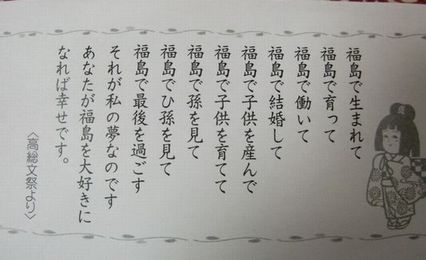 福島で生まれて
福島で育って
福島で働いて
福島で結婚して
福島で子供を産んで
福島で子供を育てて
福島で孫を見て
福島でひ孫を見て
福島で最後を過ごす
それが私の夢なのです
あなたが福島を大好きに
なれば幸せです。
〈高総文祭より〉